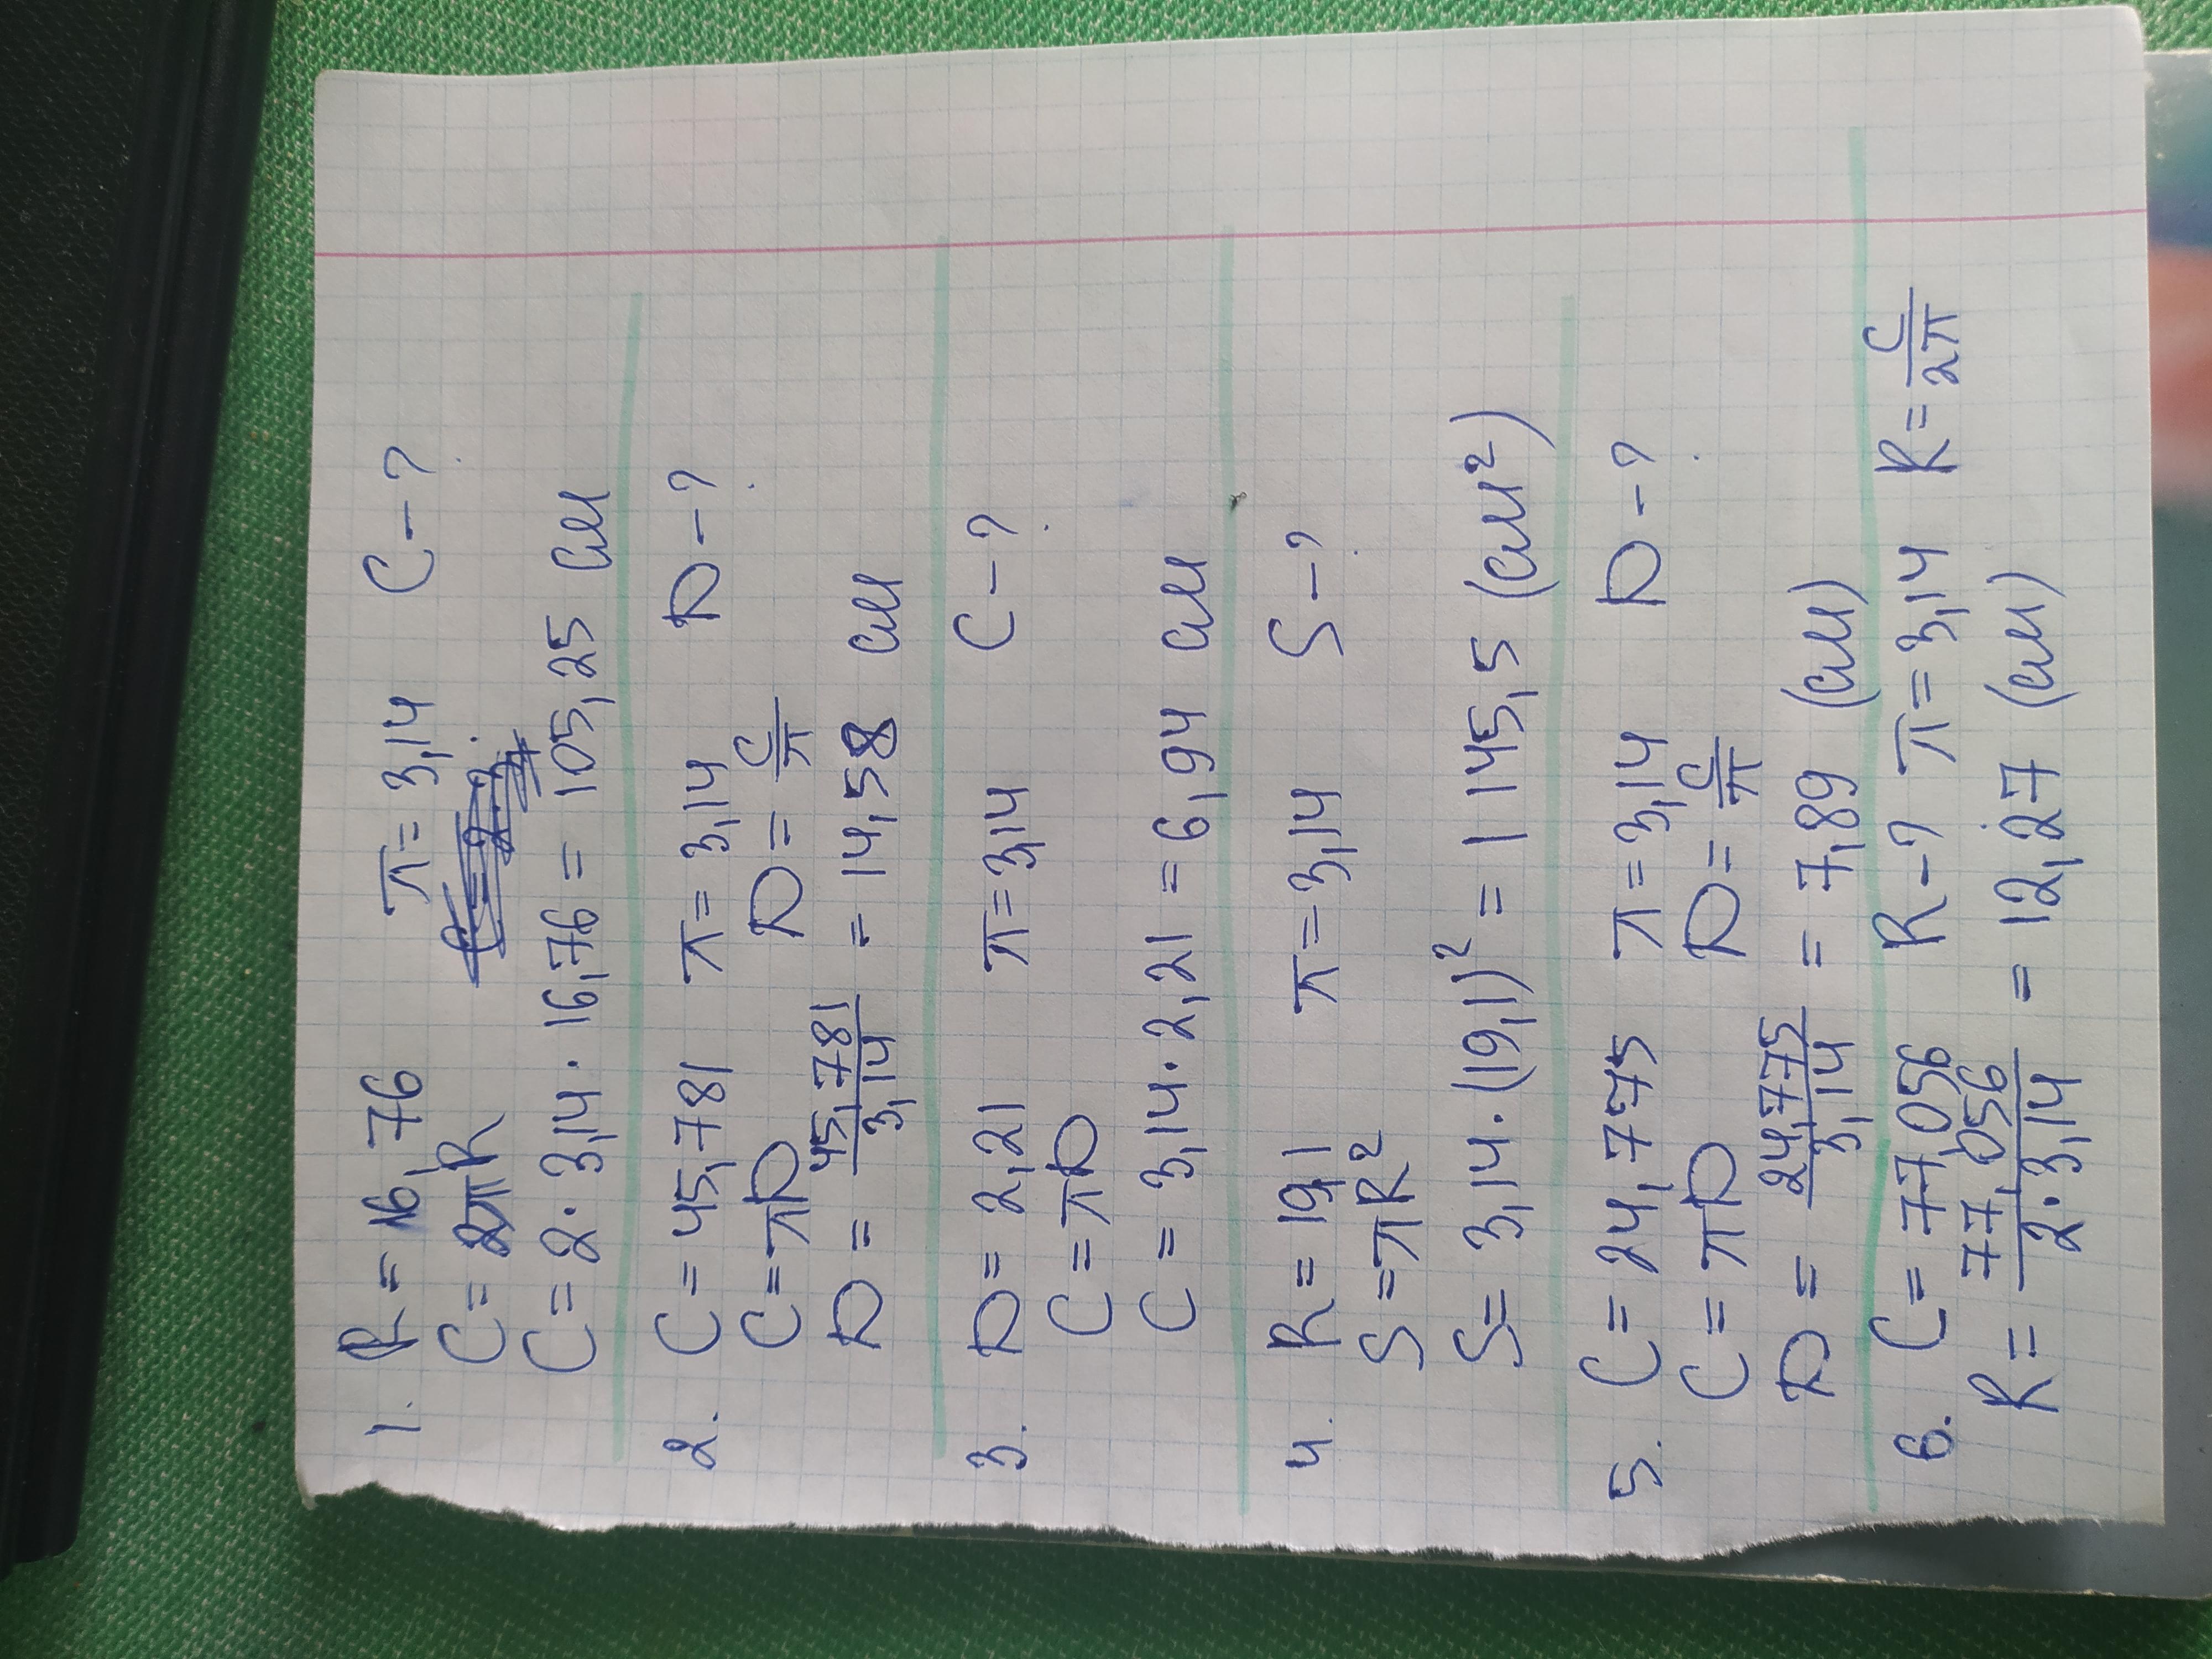 1. R = 16,76 π = 3,14 C – ?
C = 2πR
C = 2 · 3,14 · 16,76 = 105,25 см
2. C = 45,781 π = 3,14 D – ?
C = πD D = C/π
D = 45,781/3,14 = 14,58 см
3. D = 2,21 π = 3,14 C – ?
C = πD
C = 3,14 · 2,21 = 6,94 см
4. R = 19,1 π = 3,14 S – ?
S = πR²
S = 3,14 · (19,1)² = 1 145,5 (см²)
5. C = 24,775 π = 3,14 D – ?
C = πD D = C/π
D = 24,775/3,14 = 7,89 (см)
6. C = 77,056 R – ? π = 3,14 R = C/2π
R = 77,056/2·3,14 = 12,27 (см)